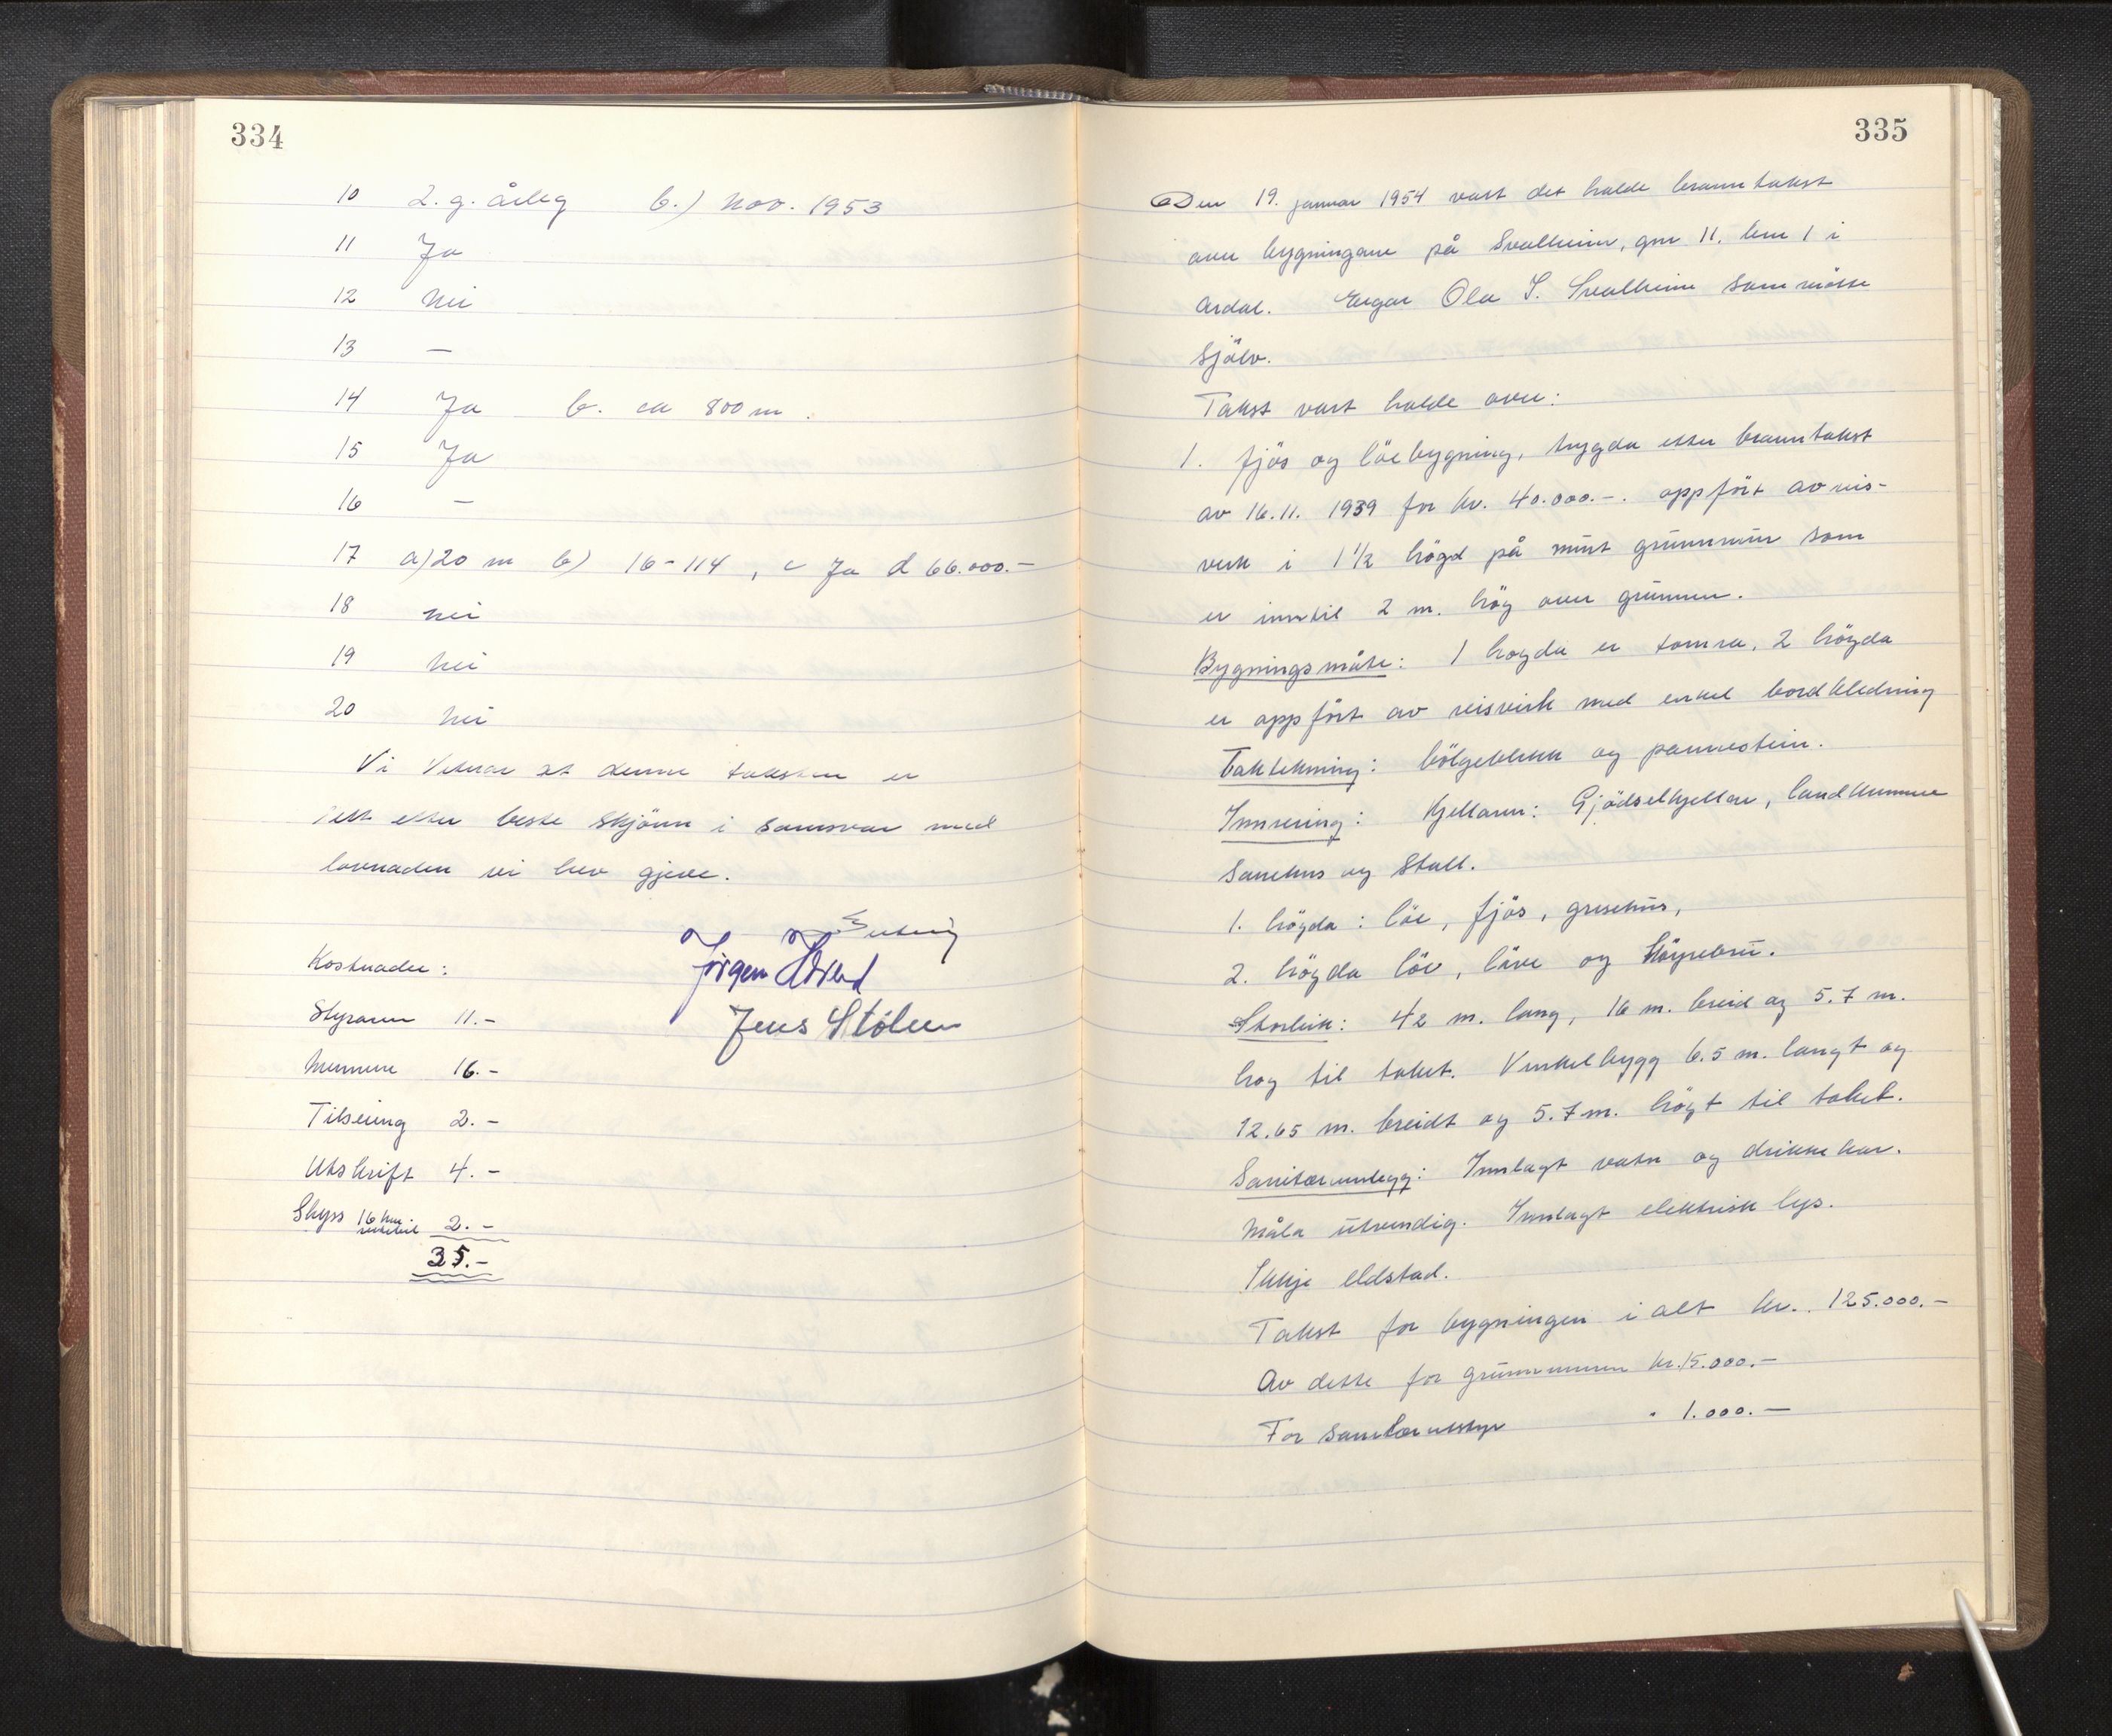 334
10 2. g. årleg b.) Nov. 1953
11 Ja
12 Nei
13 –
14 Ja b. ca 800 m.
15 Ja
16 –
17 a) 20 m b) 16-114, c Ja d 66.000.–
18 nei
19 nei
20 nei
Vi vitnar at denne taksten er
sett etter beste skjönn i samsvar med
lovnaden vi hev gjeve.
Kostnader:
Jörgen
Styraren 11.–
Jens Stölen
Mennene 16.–
Tilseing 2.–
Utskrift 4.–
Skyss 16 km 2.–
35.–
335
Den 19. januar 1954 vart det halde branntakst
over bygningane på Svalheim, gnr 11. bnr 1 i
Årdal. Eigar Ola S. Svalheim som mötte
sjölv.
Takst vart halde over:
1. fjös og löebygning, trygda etter branntakst
av 16.11. 1939 for kr. 40.000.–. oppfört av reis-
verk i 1 1/2 högd på murt grunnmur som
er inntil 2 m. hög over grunnen.
Bygningsmåte: 1 högda er tömra, 2 högda
er oppfört av reisverk med enkel bordkledning
Taktekning: bölgeblikk og pannestein.
Innreiing: Kjellaren: Gjödselkjellar, landkummer
Sauehus og Stall.
1. högda: löe, fjös, grisehus,
2. högda löe, låve og Höyebru.
Storleik: 42 m. lang, 16 m. breid og 5.7 m.
hög til taket. Vinkelbygg 6.5 m. langt og
12.65 m. breidt og 5.7 m. högt til taket.
Sanitæranlegg: Innlagt vatn og drikkekar.
Måla utvendig. Innlagt elektrisk lys.
Ikkje eldstad.
Takst for bygningen i alt kr. 125.000.–
Av dette for grunnmuren kr. 15.000.–
For sanitærutstyr " 1.000.–